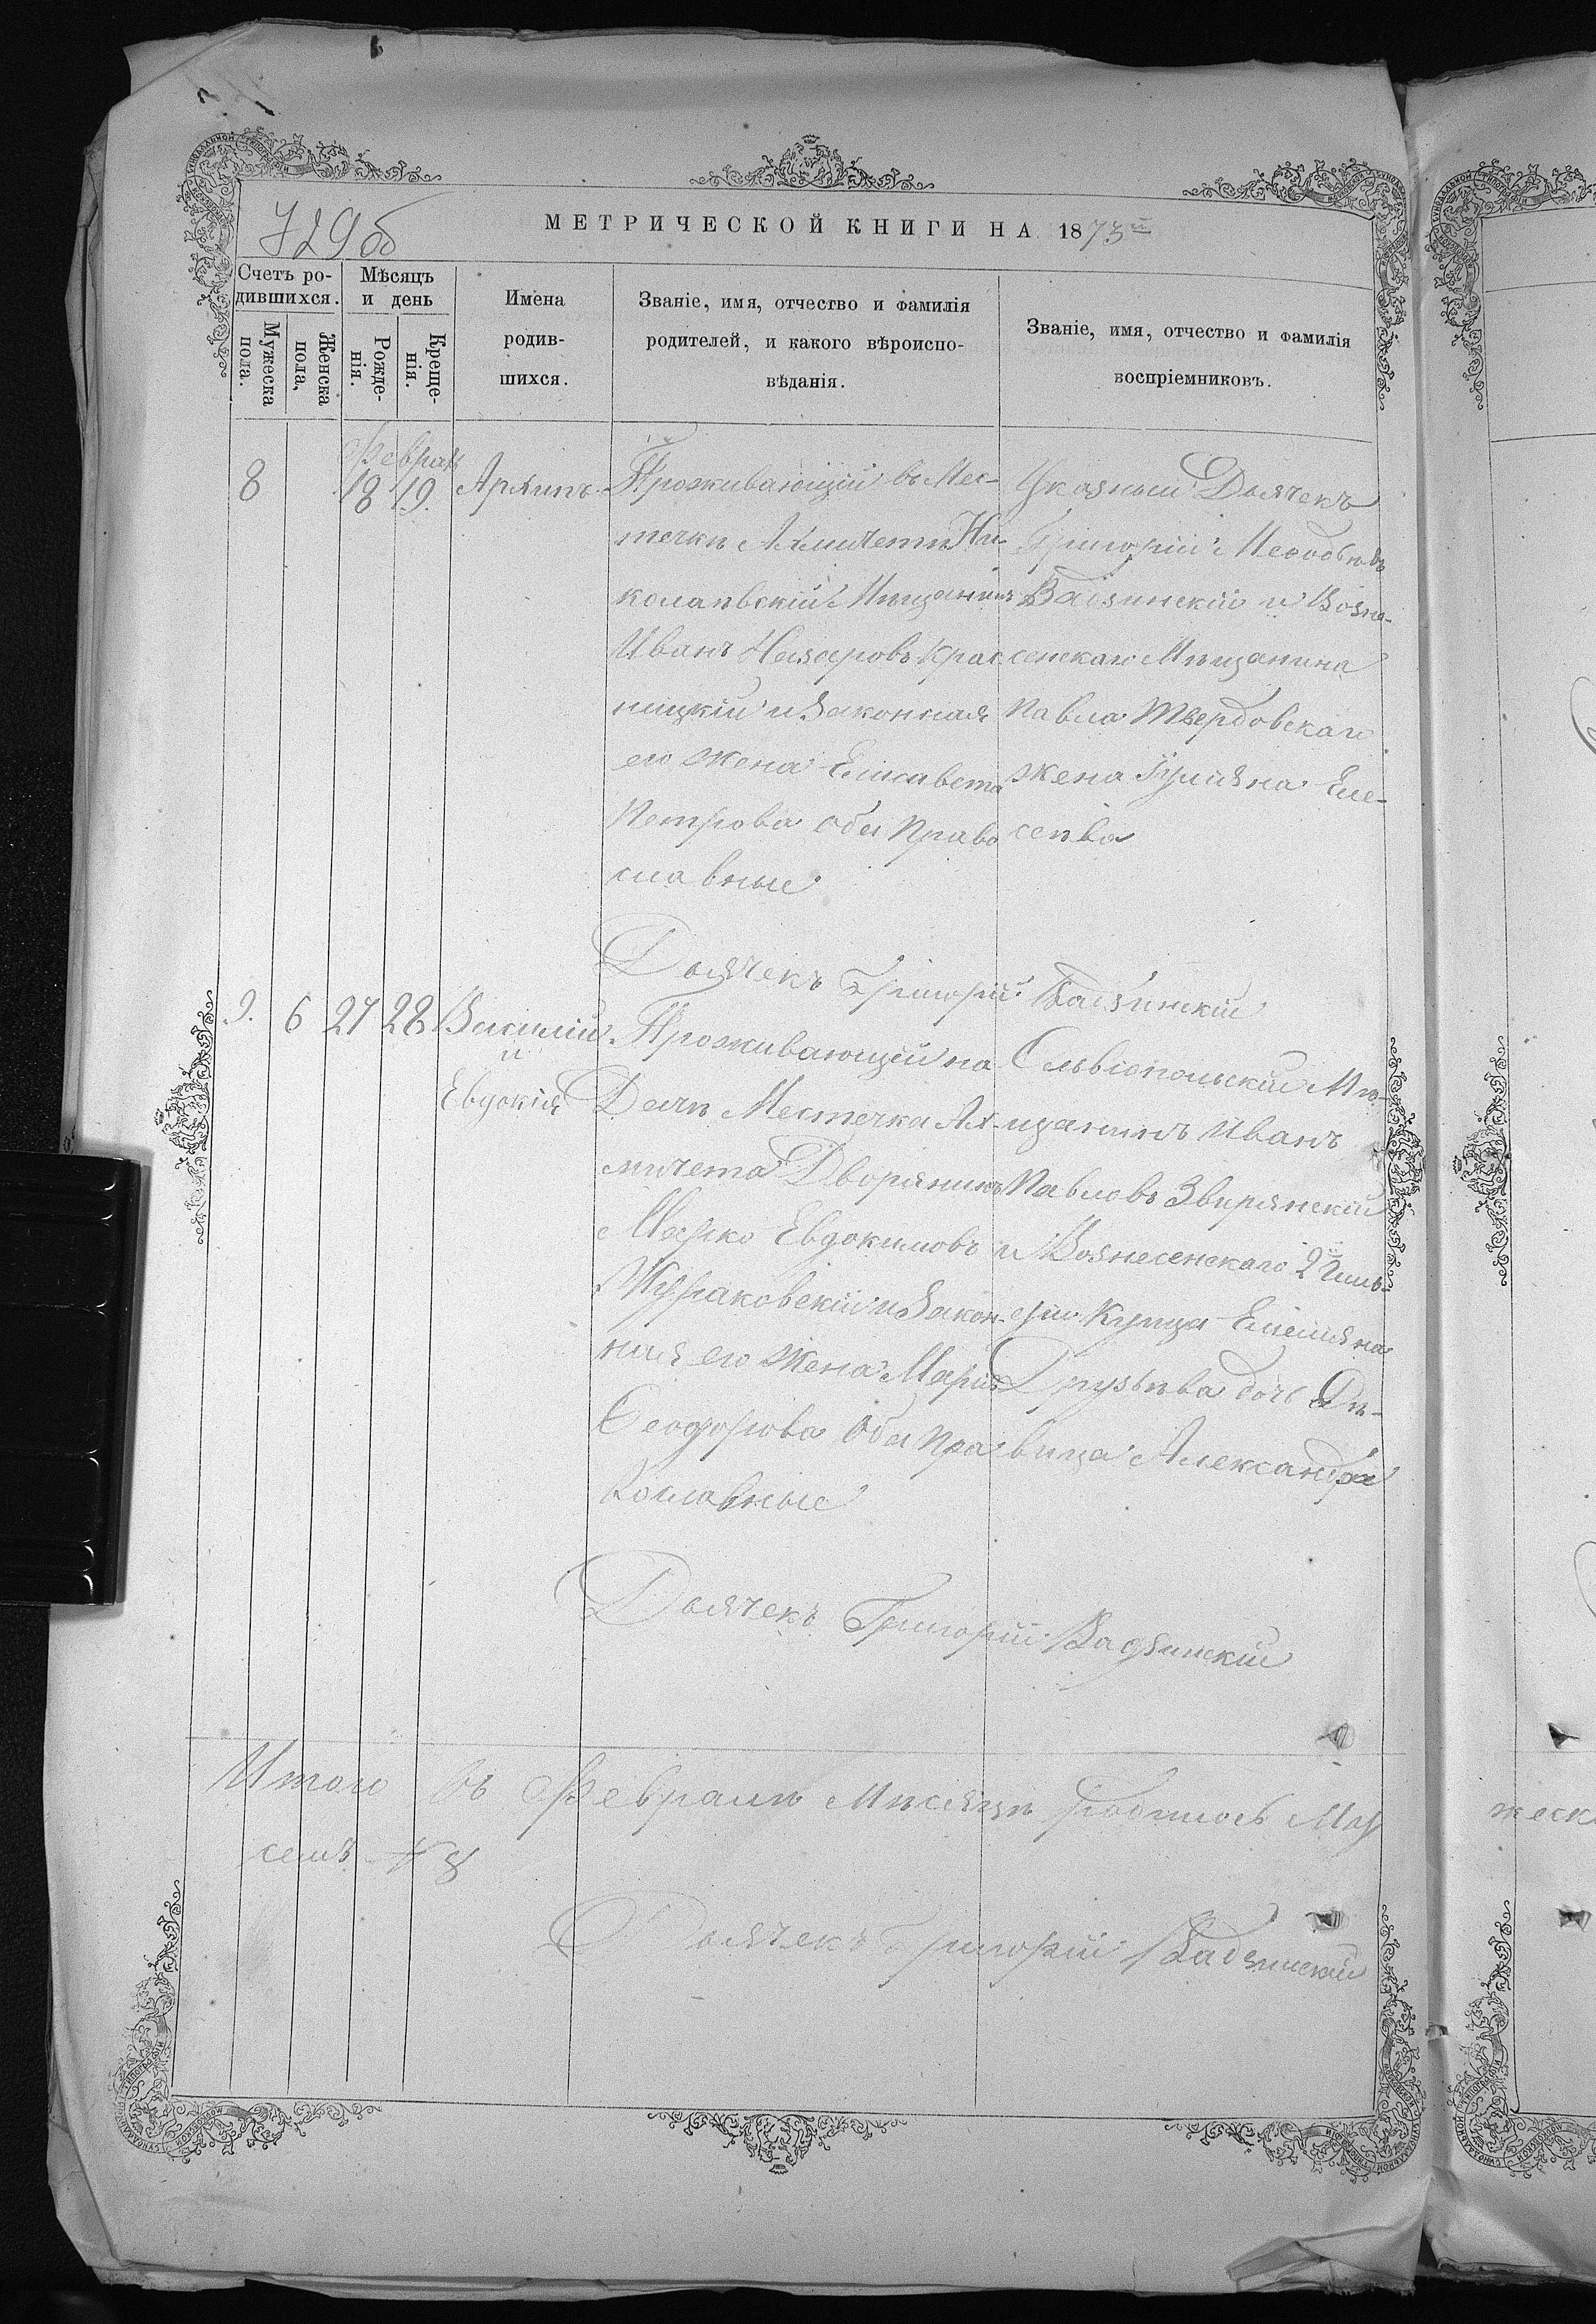 729об
МЕТРИЧЕСКОЙ КНИГИ НА 1873й
Счетъ ро-
дившихся.
Мужеска
пола.
Женска
пола,
Мѣсяцъ
и день
Рожде-
нія.
Креще-
нія.
Имена
родив-
шихся.
Званіе, имя, отчество и фамилія
родителей, и какого вѣроиспо-
вѣданія.
Званіе, имя, отчество и фамилія
воспріемниковъ.
Феврал
8 18 19. Архипъ
Проживающій въ Мес-
течкѣ Ахмичетѣ Ни-
колаевскій Мѣщанинъ
Иванъ Назаровъ Крас
ницкій и Законная
его Жена Елисавета
Петрова Оба Право
славные
Указный Дьячекъ
Григорій
Вадзинскій и Возне-
сенскаго Мѣщанина
Павла Твердовскаго
жена Іуліяна Еле-
сеева
Дьячекъ Григорій Вадзинскій
9. 6 27 28 Василій
и
Евдокія
Проживающей на
Дачѣ Местечка Ах-
мичета Дворянинъ
Марко Евдокимовъ
Жураковскій и Закон-
ная его Жена Марія
Феодорова Оба Пра
вославные
Ольвіопольскій Мѣ-
щанинъ Иванъ
Павловъ Звирянскій
и Вознесенскаго 2й Гиль-
діи Купца Емеліяна
Друзѣва дочь Дѣ-
вица Александра
Дьячекъ Григорій Вадзинскій
Итого въ Февралѣ Мѣсяцѣ родилось Му
жеск
семъ 8
Дьячекъ Григорій Вадзинскій